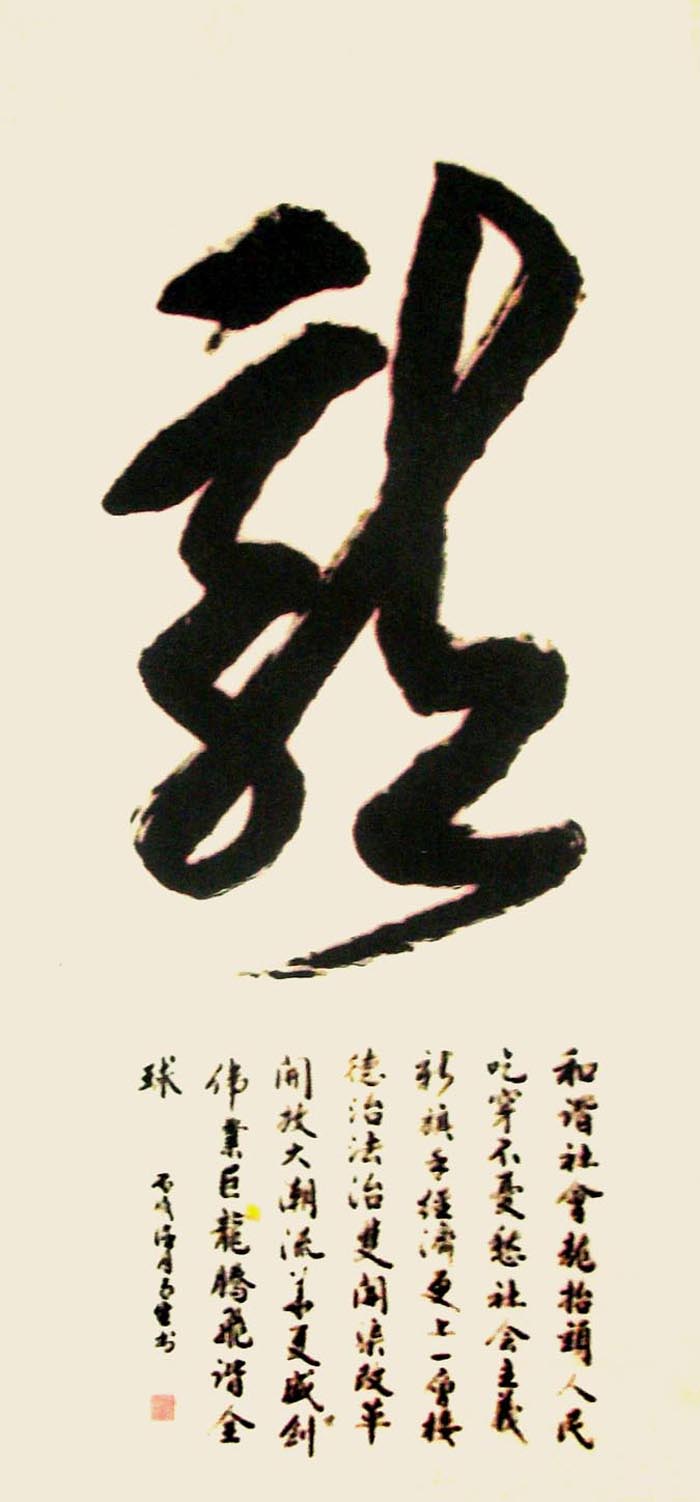 龍
和谐社會龍抬頭人民
吃穿不憂愁社会主義
新旗手經濟更上一層樓
德治法治雙開渠改革
開放大潮流华夏盛创
伟業巨龍騰飛谐全
球
丙戌
月
书